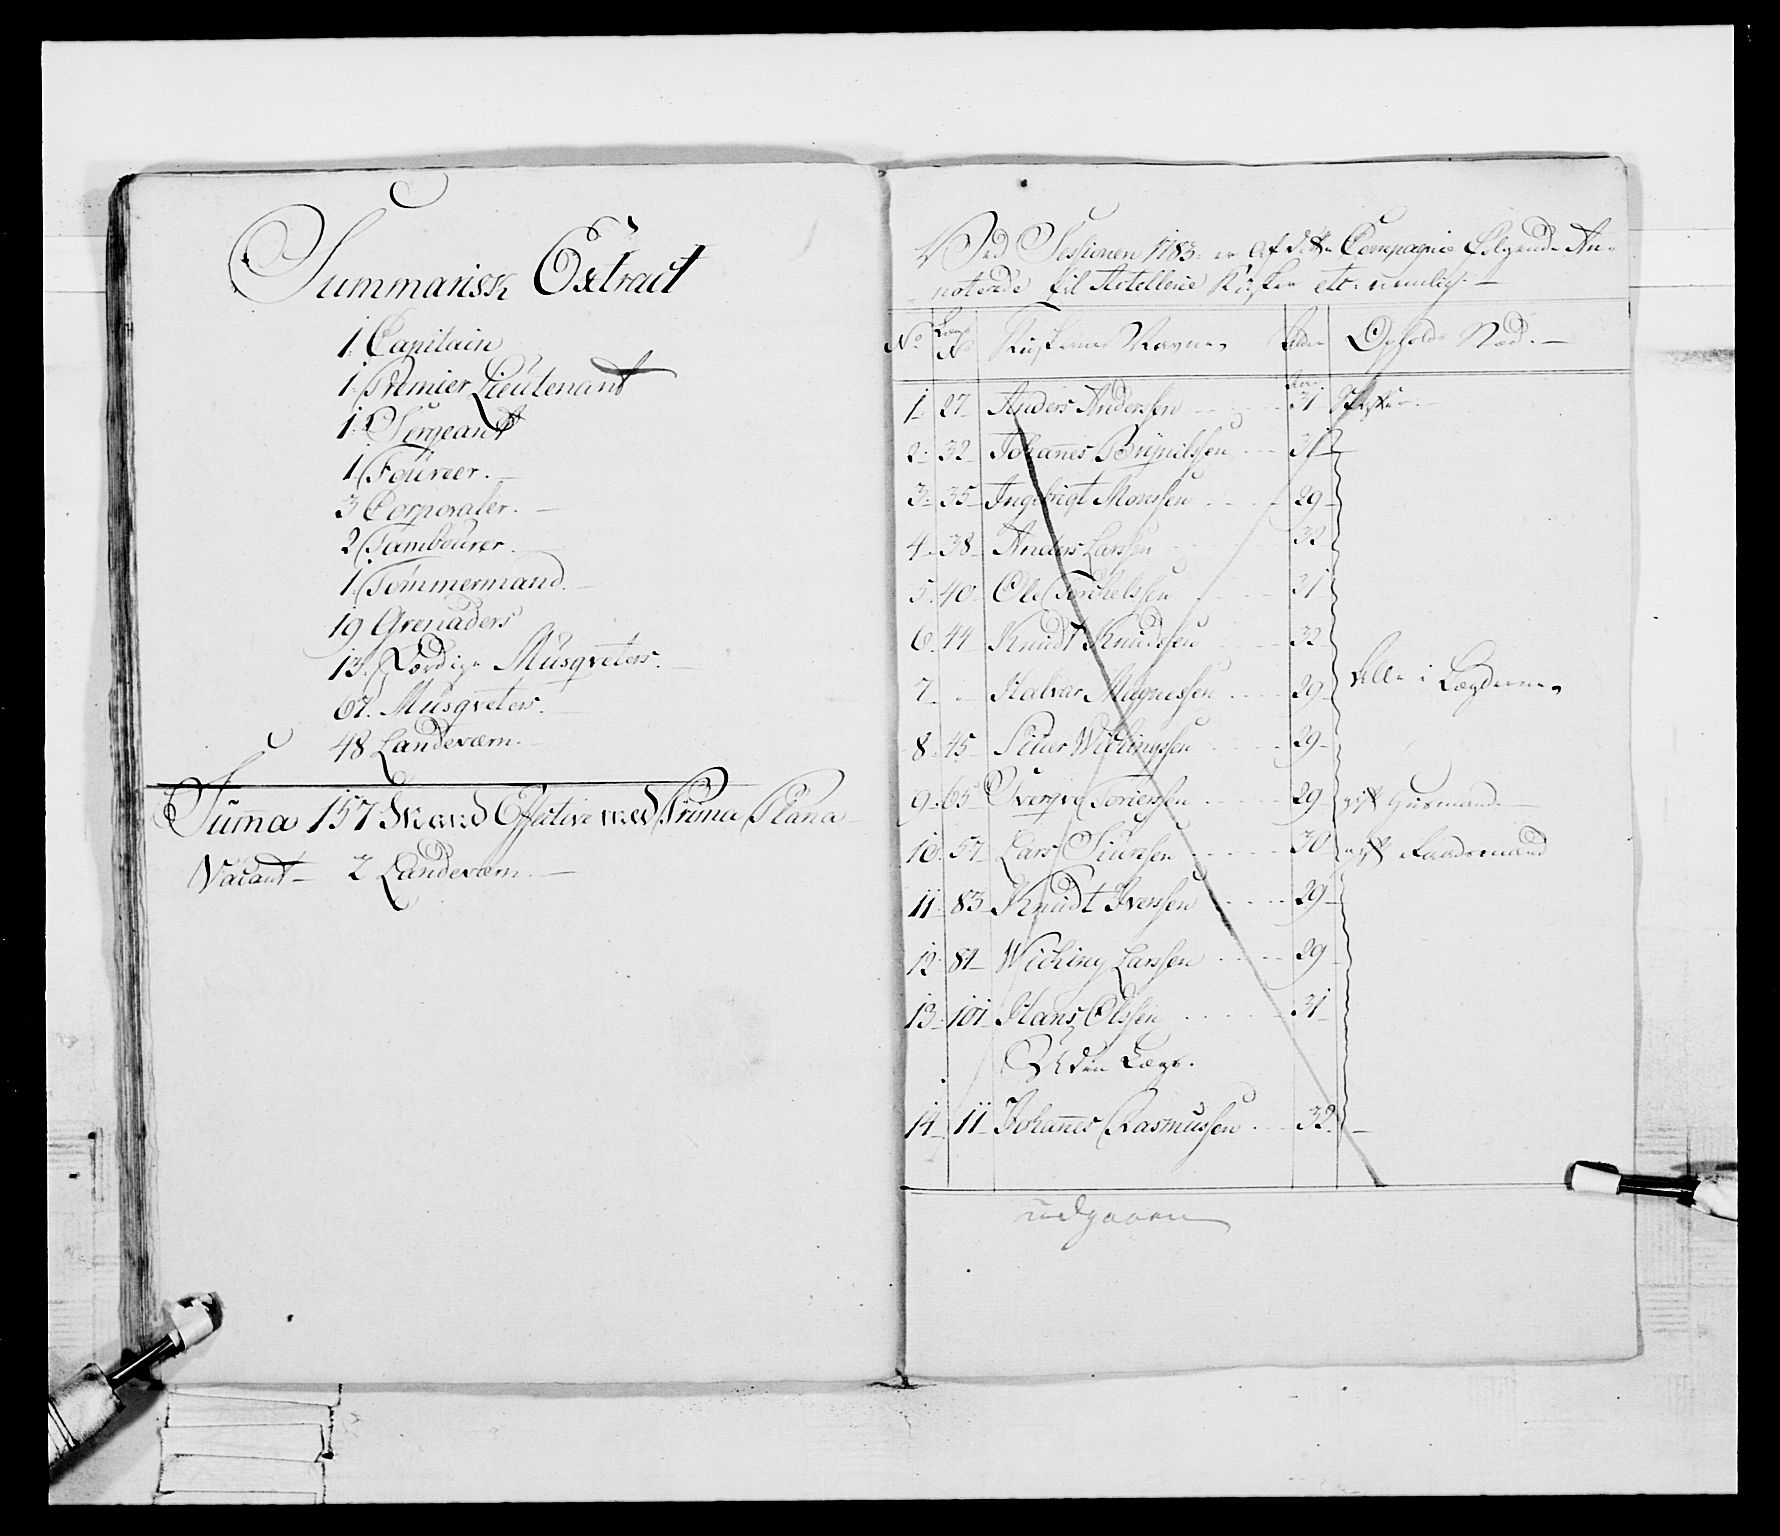 Summarisk Extract
1. Capitain
1. Premier Lieutenant
1. Sergeant
1. Foureer.
3 Corporaler.
2 Tambourer.
1. Tømmermand.
19 Grenaders
13. Færdige Musqveters.
67. Musqveters.
48 Landeværn.
Suma 157 Mand Effective med Prima Plana
Vacant 2 Landeværn.
Ved Sessionen 1783. er af dette Compagnie Følgende An-
noterede til Artellerie Kudske etc: nemlig.
No Lægs No Kudskernes Navne Alder Opholds Stæd.
1 27 Anders Andersen 31
2. 32 Johannes Brynilssen 31
3. 35 Ingebrigt Monssen 29
4. 38 Anders Larssen 32
5. 40 Ole Torchelssen 31
6. 44 Knudt Knudssen 32
7 Halvar Magnessen 29 Alle i Lægderne
8. 45 Siuer Wichingssen 29
9. 65 Sverqve Torierssen 29 gift Huusmand.
10. 57 Lars Siurssen 30 gift Raadsmand
11. 83 Knudt Iverssen 29
12. 84 Wiching Larssen 29
13. 101 Hans Olssen 31
Uden Lægs.
14. 11 Johannes Rasmussen 32.
udgaaen